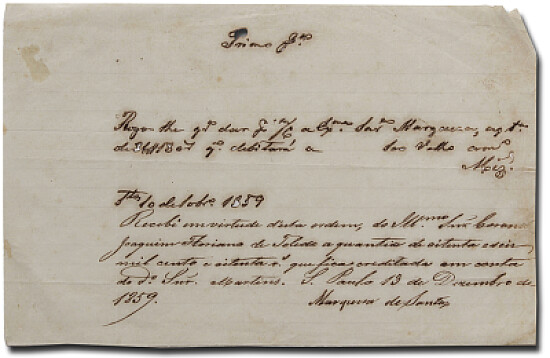 Primo J.ª
Rogo-lhe q.ᵉ dar p.ʳ m/c a Ex.ᵐᵃ Snr.ª Marqueza, a q.ᵗⁱᵃ
de q.ᵉ debitará a seo Velho am.º
10 de 1859
Recebi em virtude desta ordem, do Ill.ᵐᵒ Snr. Coronel
Joaquim Floriano de Toledo a quantia de oitenta e seis
mil cento e oitenta r.ˢ que fica creditada em conta
do d.º Snr. Martins. S. Paulo 13 de Dezembro de
1859. Marqueza de Santos